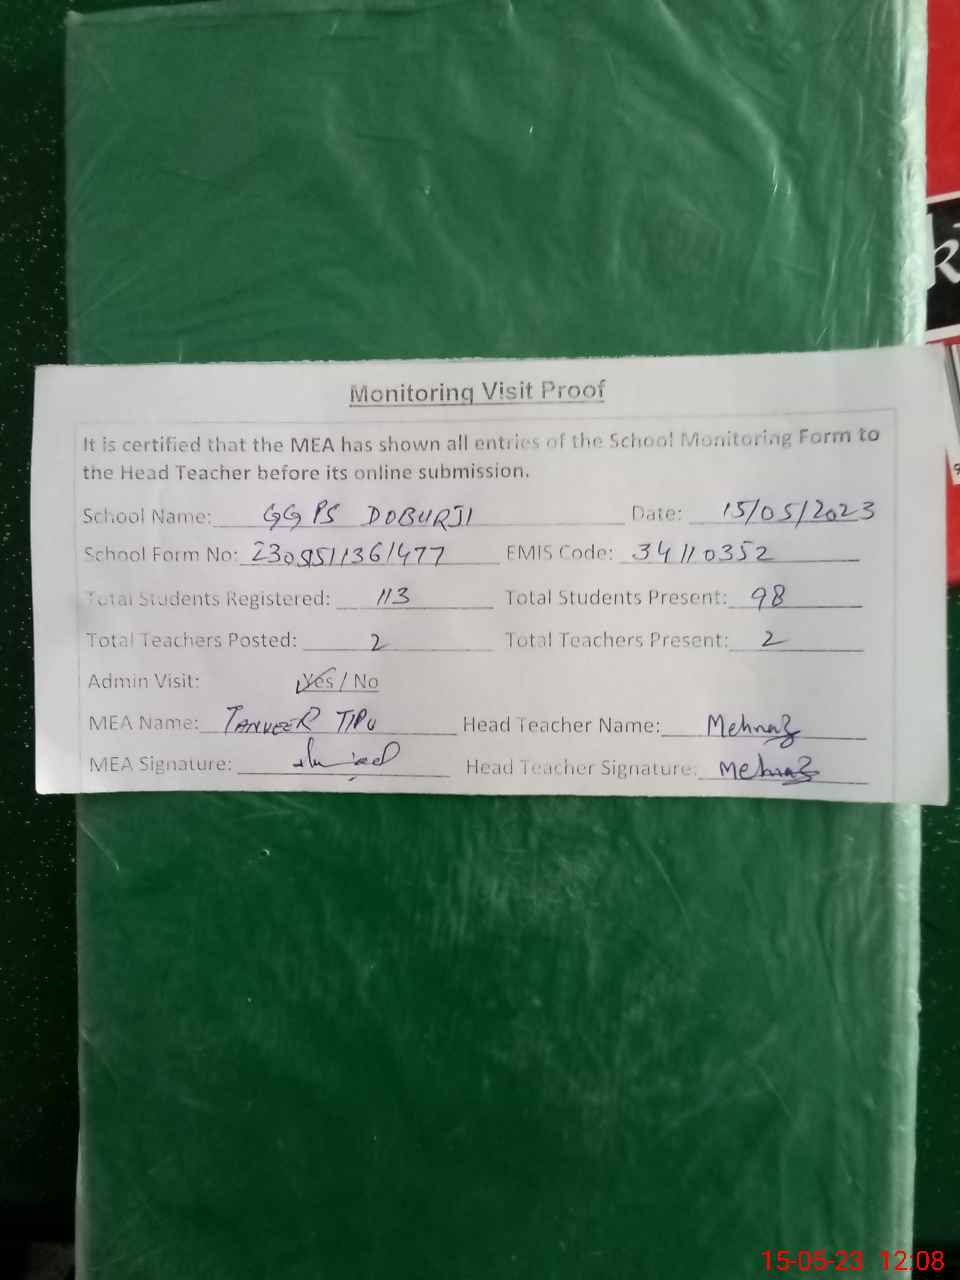 Monitoring Visit Proof
It is certified that the MEA has shown all entries of the School Monitoring Form to
the Head Teacher before its online submission.
School Name: GGPS DOBURJI Date: 15/05/2023
School Form No: EMIS Code: 34110352
Total Students Registered: 113 Total Students Present: 98
Total Teachers Posted: 2 Total Teachers Present: 2
Admin Visit: Yes / No
MEA Name: TANVEER TIPU Head Teacher Name: Mehnaz
MEA Signature: Head Teacher Signature: Mehnaz
15-05-23 12:08